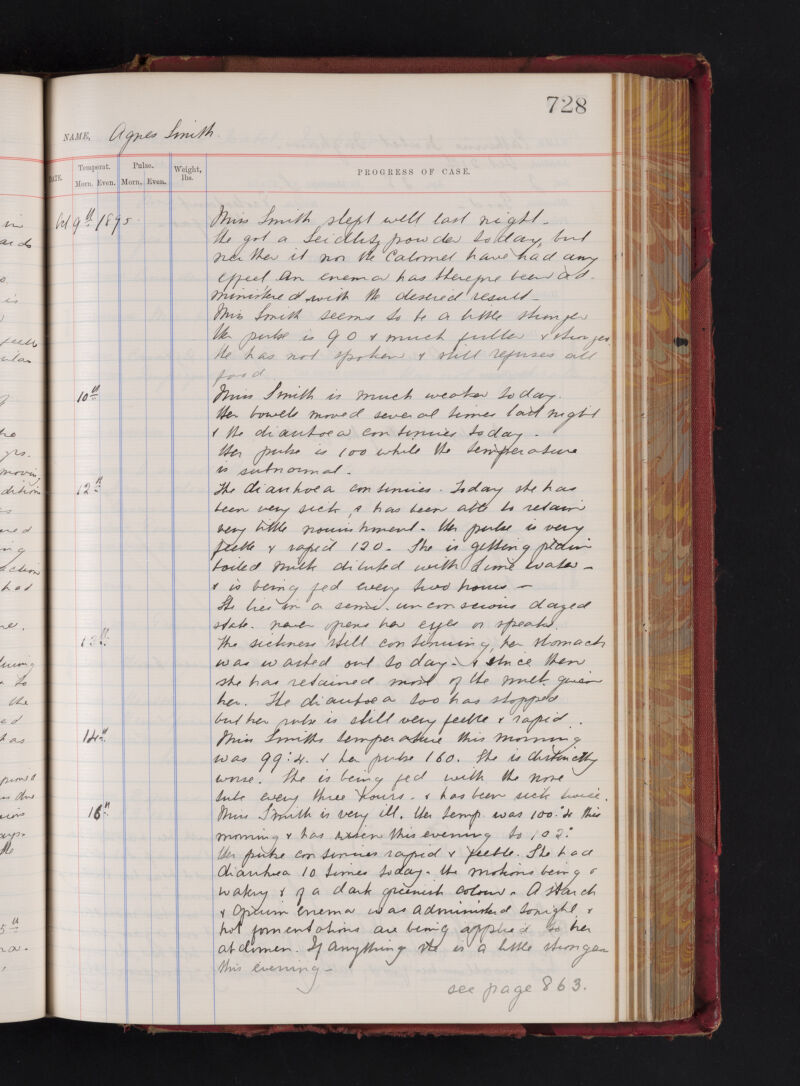 728
NAME, Agnes Smith.
DATE. Temperat. Pulse. Weight, lbs. PROGRESS OF CASE.
Morn. Even. Morn. Even.
Oct 9th 1895. Miss Smith slept well last night.
She got a Seidlitz powder today, but
neither it nor the Calomel have had any
effect. An enema has therefore been ad-
ministered with the desired result -
Miss Smith seems to be a little stronger
Her pulse is 90 & much fuller & stronger.
She has not spoken & still refuses all
food.
10th Miss Smith is much weaker today.
Her bowels moved several times last night
& the diarrhoea continues today.
Her pulse is 100 while the temperature
is subnormal.
12th The diarrhoea continues. Today she has
been very sick, & has been able to retain
very little nourishment. Her pulse is very
feeble & rapid 120. She is getting plain
boiled milk diluted with lime water -
& is being fed every two hours -
She lies in a semi-unconscious dazed
state. never opens her eyes or speaks.
13th The sickness still continuing, her stomach
was washed out today. & since then
she has retained most of the milk given
her. The diarrhoea too has stopped
but her pulse is still very feeble & rapid.
14th Miss Smiths temperature this morning
was 99.4. & her pulse 160. She is distinctly
worse. She is being fed with the nose
tube every three hours. & has been sick twice.
16th Miss Smith is very ill. Her temp. was 100.4 this
morning & has risen this evening to 102.
Her pulse continues rapid & feeble. She had
diarrhea 10 times today. the motions being
watery & of a dark greenish colour. A starch
& opium enema was administered tonight &
hot fomentations are being applied to her
abdomen. If anything she is a little stronger
this evening -
see page 863.